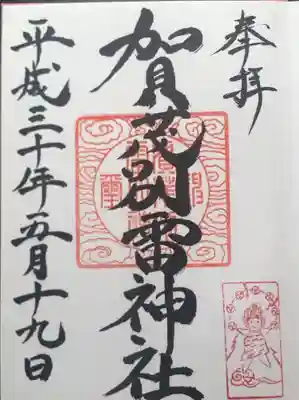 奉拝
加賀茂別雷神社
平成三十年五月十九日